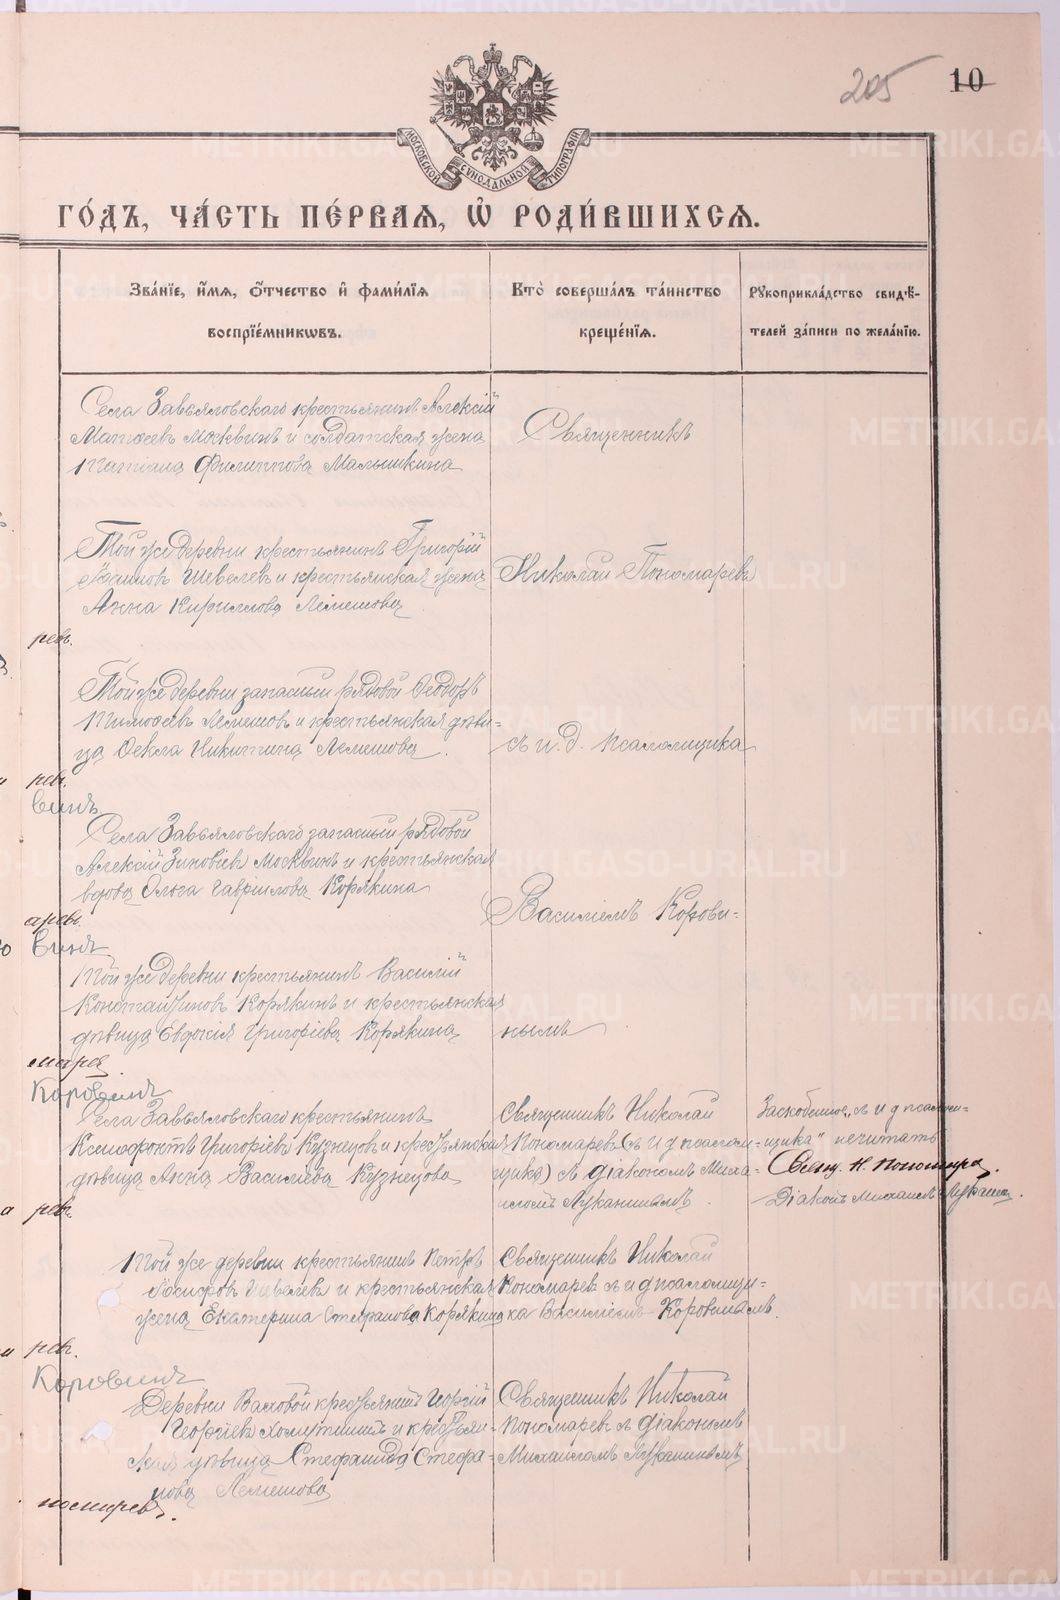 205 10
МОСКОВСКОЙ СѴНОДАЛЬНОЙ ТИПОГРАФІИ
ГО́ДЪ, ЧА́СТЬ ПЕ́РВАѦ, Ѡ҆ РОДИ́ВШИХСѦ.
Зва́нїе, и҆́мѧ, ѻ҆́тчество и҆ фами́лїѧ
воспрїе́мникѡвъ.
Кто̀ соверша́лъ та́инство
креще́нїѧ.
Рꙋкоприкла́дство свидѣ́-
телей за́писи по жела́нїю.
Села Завьяловскаго крестьянинъ Алексій
Матѳеевъ Москвинъ и солдатская жена
Татіана Филиппова Малышкина
Священникъ
Той же деревни крестьянинъ Григорій
Іоакимовъ Шевелевъ и крестьянская жена
Анна Кириллова Лемешова
Николай Пономаревъ
рев.
Той же деревни запасный рядовой Ѳеодоръ
Тимоѳеевъ Лемешовъ и крестьянская дѣви-
ца Ѳекла Никитина Лемешова.
съ и. д. псаломщика
рев.
винъ
Села Завьяловскаго запасный рядовой
Алексій Зиновіевъ Москвинъ и крестьянская
вдова Ольга Гавріилова Корякина
Василіемъ Корови-
арев.
винъ
Той же деревни крестьянинъ Василій
Константиновъ Корякинъ и крестьянская
дѣвица Евдокія Григоріева Корякина
нымъ
марев
Коровинъ
Села Завьяловскаго крестьянинъ
Ксенофонтъ Григоріевъ Кузнецовъ и крестьянская
дѣвица Анна Василіева Кузнецова
Священникъ Николай
Пономаревъ (съ и д псалом-
щика) съ діакономъ Миха-
иломъ Луканинымъ.
Заскобленое „съ и д псалом-
щика" нечитать
Свящ. Н. Пономарев.
Діаконъ Михаилъ Луканин.
рев.
Той же деревни крестьянинъ Петръ
Іосифовъ Шевелевъ и крестьянская
жена Екатерина Стефанова Корякина
Священникъ Николай
Пономаревъ съ и д псаломщи-
ка Василіемъ Коровинымъ.
рев.
Коровинъ
Деревни Ваховой крестьянинъ Георгій
Георгіевъ Хомутининъ и крестьян-
ская дѣвица Стефанида Стефа-
нова Лемешова
Священникъ Николай
Пономаревъ съ діакономъ
Михаиломъ Луканинымъ
номаревъ.
METRIKI.GASO-URAL.RU